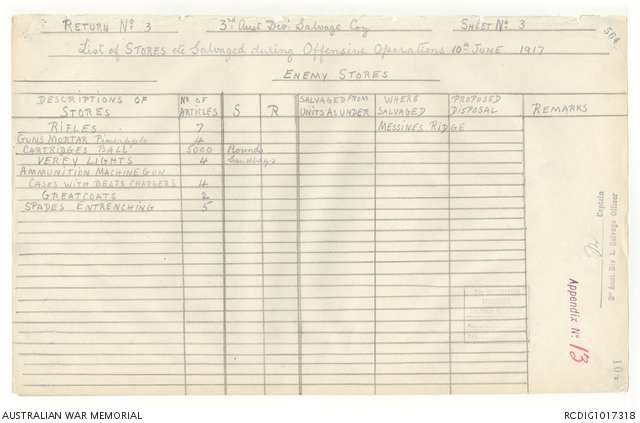 RETURN No 3 3rd Aust Divl Salvage Coy SHEET No 3
List of STORES etc Salvaged during Offensive Operations 10th JUNE 1917
ENEMY STORES
DESCRIPTIONS OF STORES No OF ARTICLES S R SALVAGED FROM UNITS AS UNDER WHERE SALVAGED PROPOSED DISPOSAL REMARKS
RIFLES 7 MESSINES RIDGE
GUNS MORTAR Pineapple 4
CARTRIDGES BALL 5000 Rounds
VEREY LIGHTS 4 Sandbags
AMMUNITION MACHINE GUN
CASES WITH BELTS CHARGERS 4
GREATCOATS 2
SPADES ENTRENCHING 5
Captain
3rd Aust. Div l. Salvage Officer
Appendix No. 13
AUSTRALIAN WAR MEMORIAL RCDIG1017318